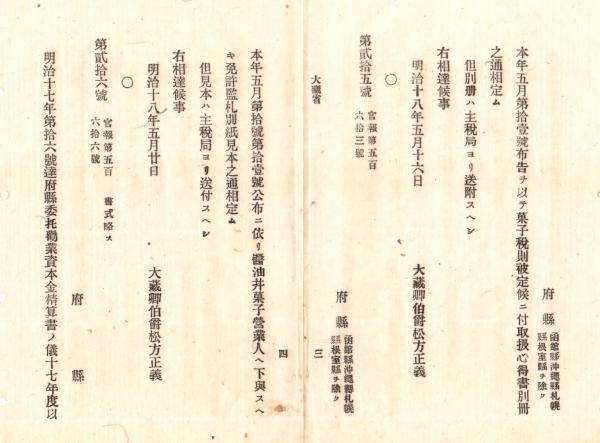 府縣 函館縣沖繩縣札幌縣根室縣ヲ除ク
本年五月第拾壹號布告ヲ以テ菓子稅則被定候ニ付取扱心得書別冊
之通相定ム
但別册ハ主稅局ヨリ送附スヘシ
右相達候事
明治十八年五月十六日 大藏卿伯爵松方正義
〇
第貳拾五號 官報第五百六拾三號
府縣 函館縣沖繩縣札幌縣根室縣ヲ除ク
大藏省 三
四
本年五月第拾號第拾壹號公布ニ依リ醬油幷菓子營業人ヘ下與スヘ
キ免許鑑札別紙見本之通相定ム
但見本ハ主稅局ヨリ送付スヘシ
右相達候事
明治十八年五月廿日 大藏卿伯爵松方正義
〇
第貳拾六號 官報第五百六拾六號 書式略ス
府縣
明治十七年第拾六號達府縣委托勸業資本金精算書ノ儀十七年度以